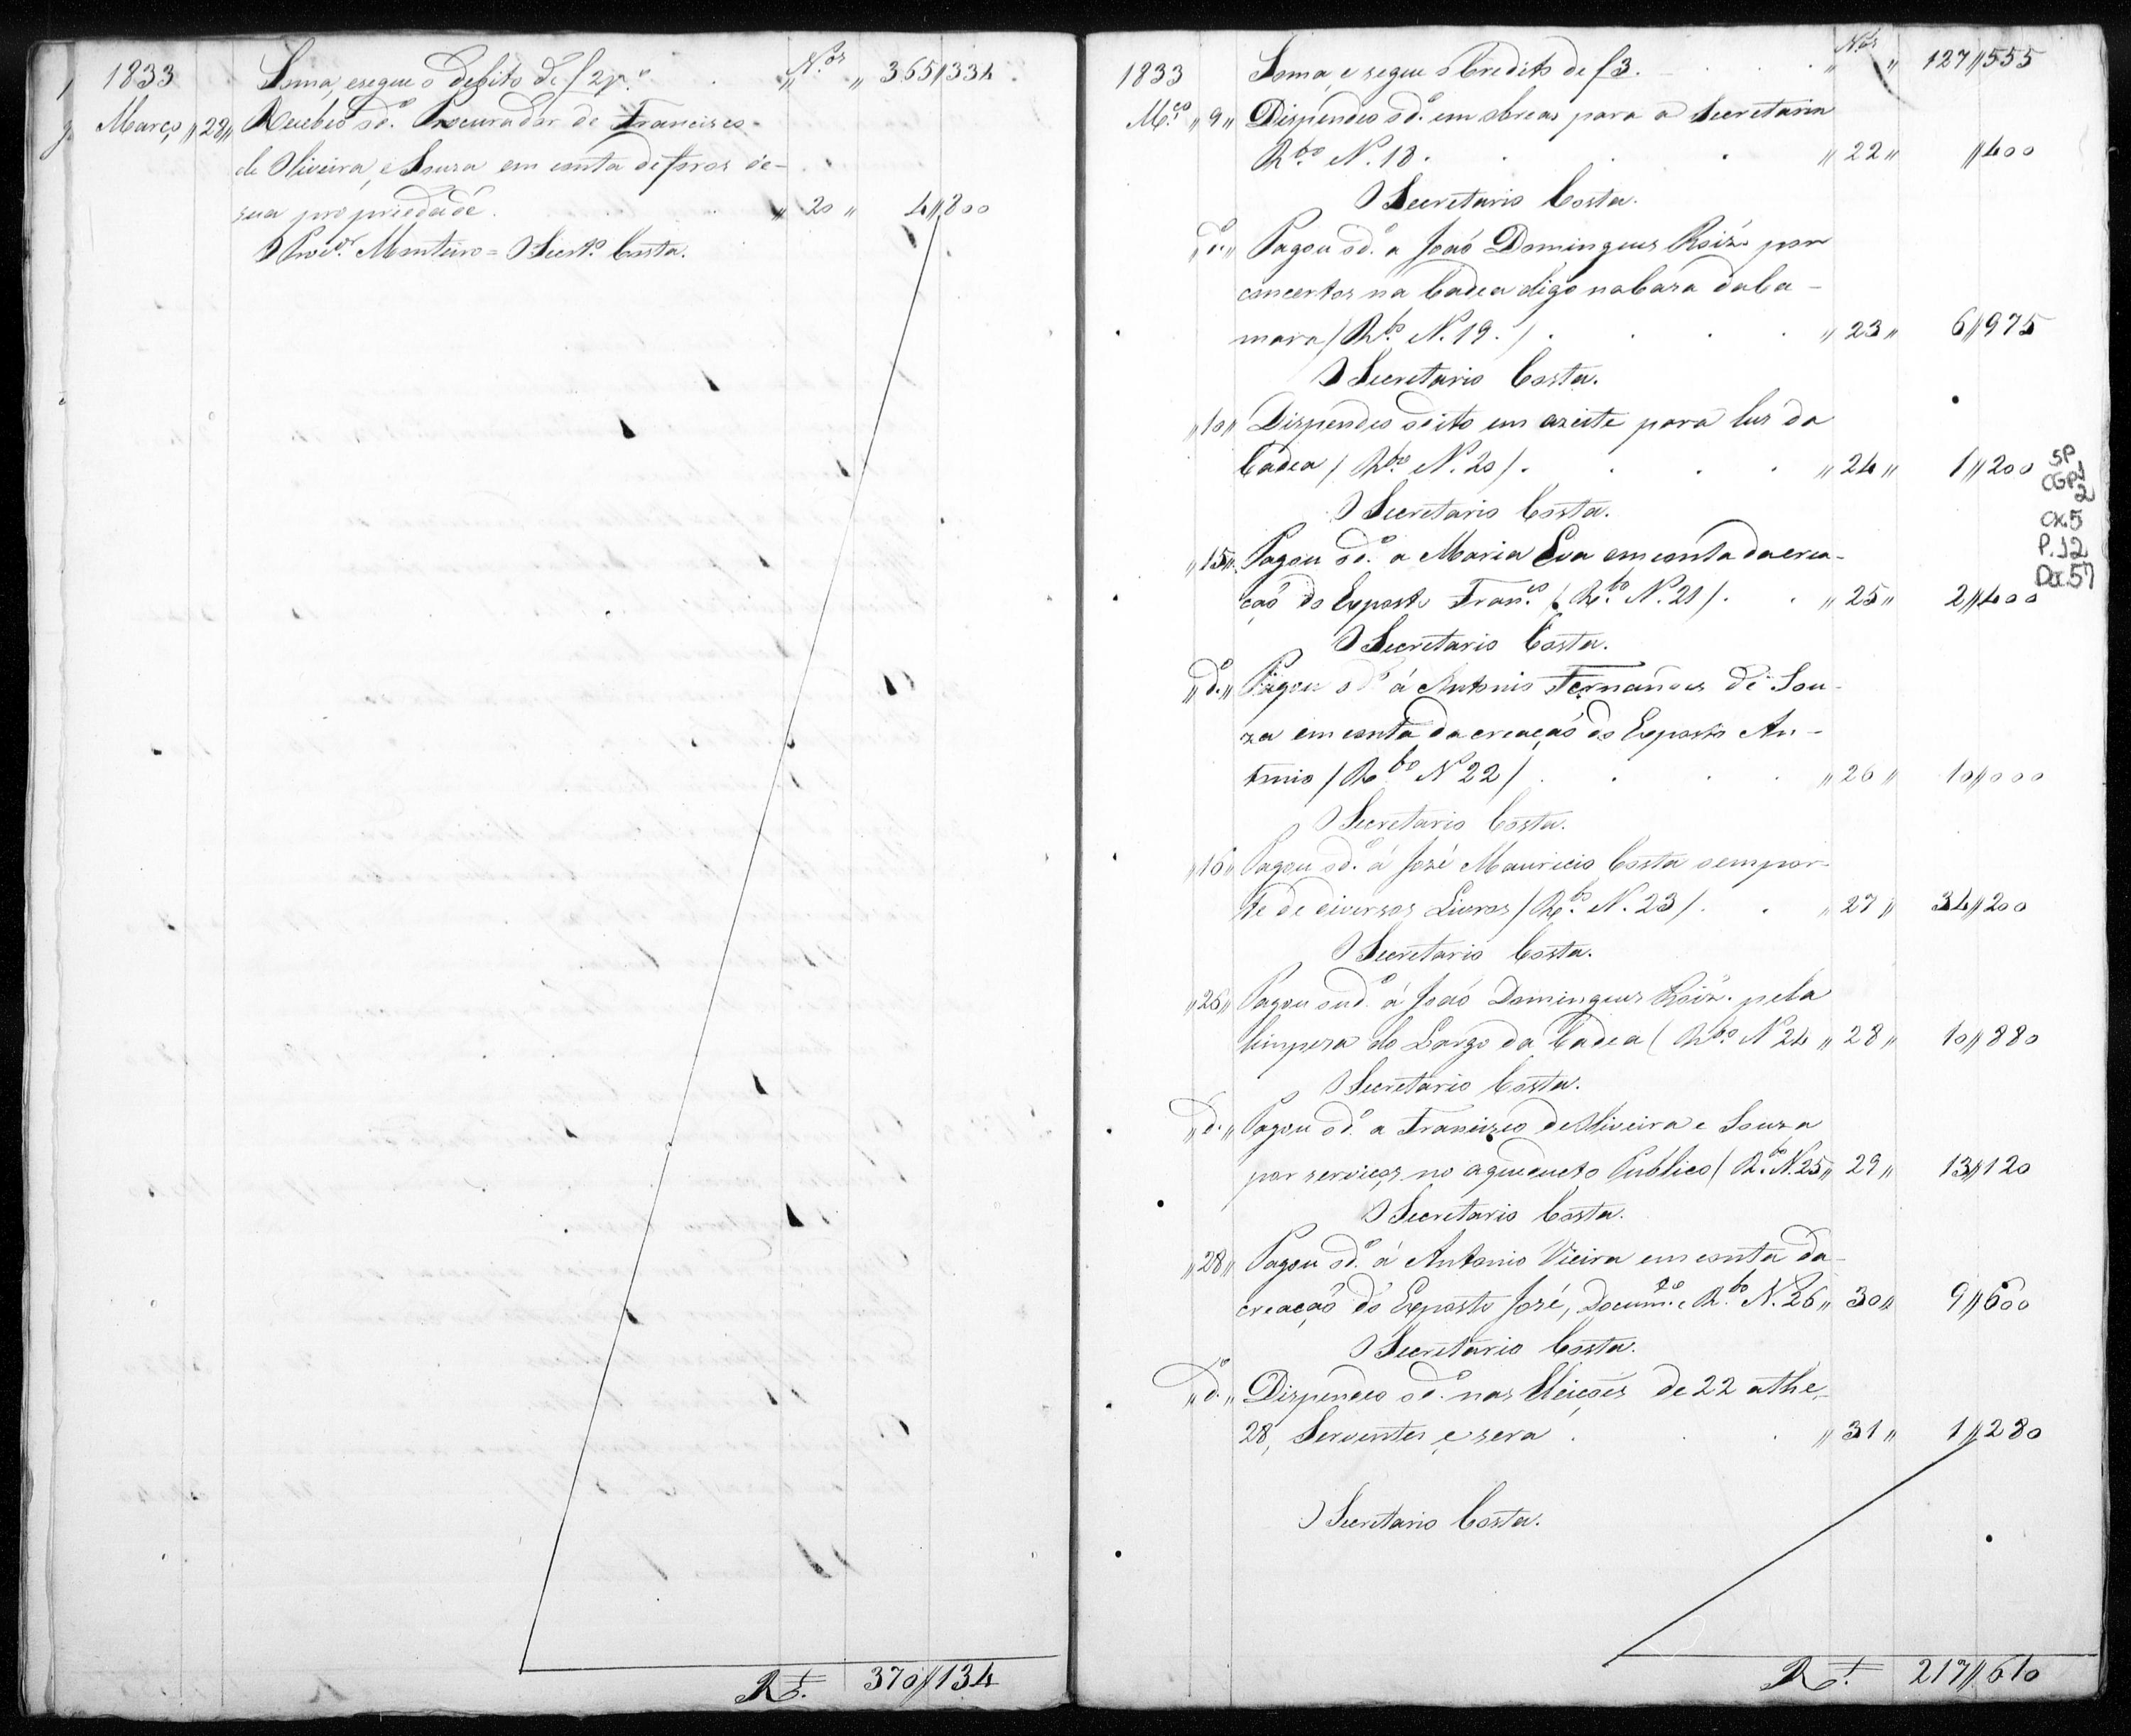 1833 Soma, e segue o debito de f 2 v.º N.os 365//334
Março 28 Recebeo o d.º Procurador de Francisco
de Oliveira, e Souza em conta de foros de
sua propriedade. 20 4//800
O Proc.dor Monteiro = O Secrt.º Costa.
R.s 370//134
1833 Soma, e segue o Credito de f 3. N.os 127//555
M.ço 9 Dispendeo o d.º em obreas para a Secretaria
R.bo N. 18. 22 //400
O Secretario Costa.
d.º Pagou o d.º a João Domingues Roiz. por
concertos na Cadea digo na Casa da Ca-
mara / R.bo N. 19. / 23 6//975
O Secretario Costa.
10 Dispendeo o dito em azeite para lus da
Cadea / R.bo N. 20 / 24 1//200
O Secretario Costa.
15 Pagou o d.º a Maria Eva em conta da crea-
ção do Exposto Fran.co / R.bo N. 21 / 25 2//400
O Secretario Costa.
d.º Pagou o d.º á Antonio Fernandes de Sou-
za em conta da creação do Exposto An-
tonio / R.bo N 22 / 26 10//000
O Secretario Costa.
16 Pagou o d.º á José Mauricio Costa o empor-
te de diversos Livros / R.bo N. 23 / 27 34//200
O Secretario Costa.
26 Pagou o d.º á João Domingues Roiz. pela
limpesa do Largo da Cadea ( R.bo N 24 28 10//880
O Secretario Costa.
d.º Pagou o d.º a Francisco de Oliveira e Souza
por serviços no aqueducto Publico ( R.bo N. 25 29 13//120
O Secretario Costa.
28 Pagou o d.º á Antonio Vieira em conta da
creação do Exposto José, Docum.to e R.bo N. 26 30 9//600
O Secretario Costa.
d.º Dispendeo o d.º nas Eleições de 22 athe
28, Serventes e sera 31 1//280
O Secretario Costa.
R.s 217//610
SP
CGP1
2
CX.5
P.12
Da.57